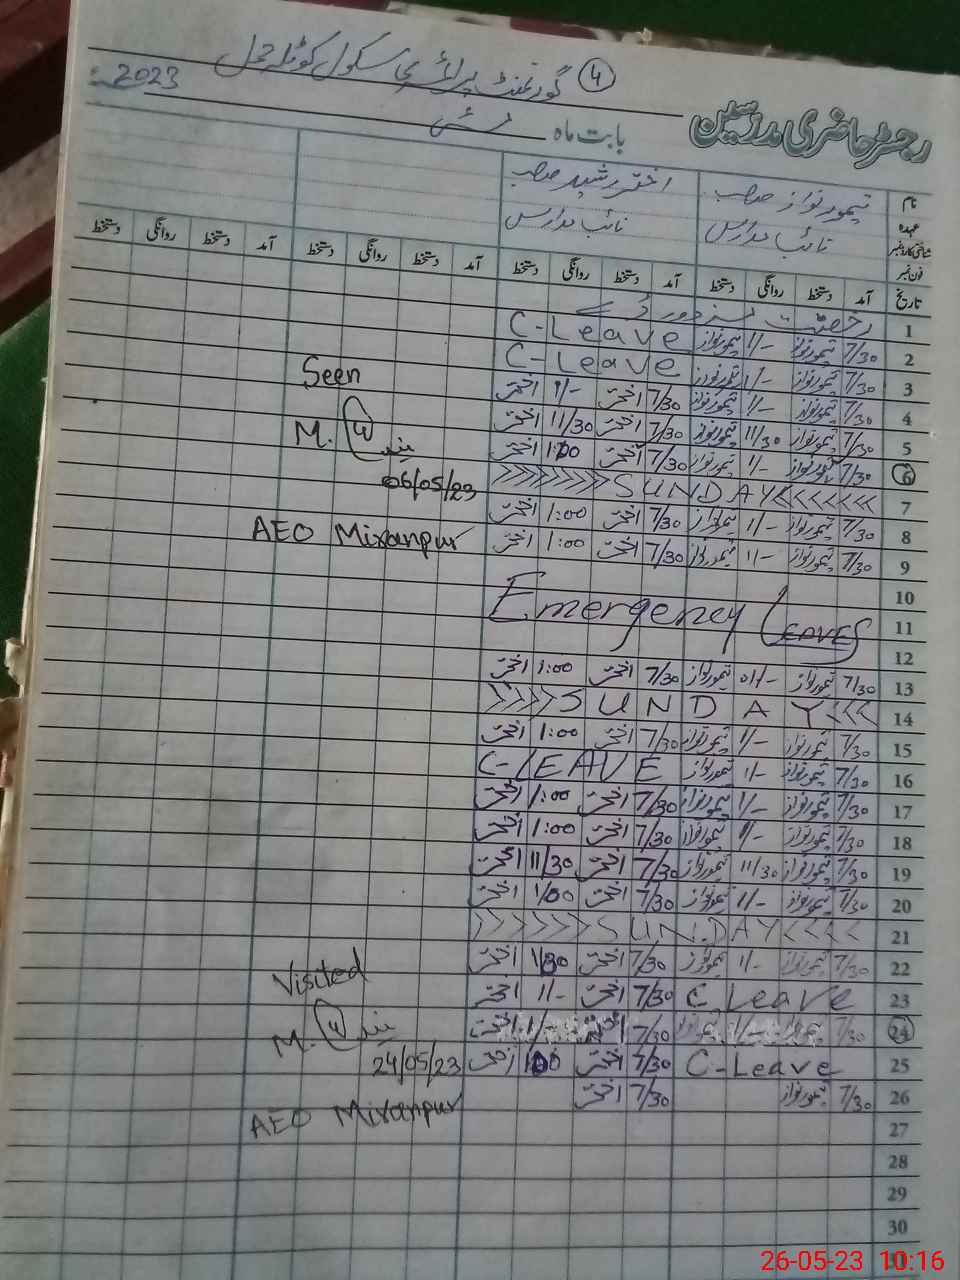 گورنمنٹ پرائمری سکول کوٹلہ جمل 4
رجسٹر حاضری مدرسین بابت ماہ مئی 2023
نام تیمور نواز صاحب اختر رشید صاحب
عہدہ نائب مدارس نائب مدارس
شناختی کارڈ نمبر
فون نمبر
تاریخ آمد دستخط روانگی دستخط آمد دستخط روانگی دستخط آمد دستخط روانگی دستخط آمد دستخط روانگی دستخط
1 رخصت
2 7/30 تیمور نواز 1/- تیمور نواز C-Leave
3 7/30 تیمور نواز 1/- تیمور نواز C-Leave
4 7/30 تیمور نواز 1/- تیمور نواز 7/30 اختر 1/- اختر
5 7/30 تیمور نواز 11/30 تیمور نواز 7/30 اختر 11/30 اختر
6 7/30 تیمور نواز 1/- تیمور نواز 7/30 اختر 1:00 اختر
7 SUNDAY
8 7/30 تیمور نواز 1/- تیمور نواز 7/30 اختر 1:00 اختر
9 7/30 تیمور نواز 1/- تیمور نواز 7/30 اختر 1:00 اختر
10
11 Emergency Leaves
12
13 7/30 تیمور نواز 01/- تیمور نواز 7/30 اختر 1:00 اختر
14 SUNDAY
15 7/30 تیمور نواز 1/- تیمور نواز 7/30 اختر 1:00 اختر
16 7/30 تیمور نواز 1/- تیمور نواز C-LEAVE
17 7/30 تیمور نواز 1/- تیمور نواز 7/30 اختر 1:00 اختر
18 7/30 تیمور نواز 1/- تیمور نواز 7/30 اختر 1:00 اختر
19 7/30 تیمور نواز 11/30 تیمور نواز 7/30 اختر 11/30 اختر
20 7/30 تیمور نواز 1/- تیمور نواز 7/30 اختر 1/00 اختر
21 SUNDAY
22 7/30 تیمور نواز 1/- تیمور نواز 7/30 اختر 1/30 اختر
23 C-Leave 7/30 اختر 1/- اختر
24 7/30 7/30 اختر
25 C-Leave 7/30 اختر 1:00 اختر
26 7/30 تیمور نواز 7/30 اختر
27
28
29
30
31
Seen
M.
06/05/23
AEO Miranpur
Visited
M.
24/05/23
AEO Miranpur
26-05-23 10:16